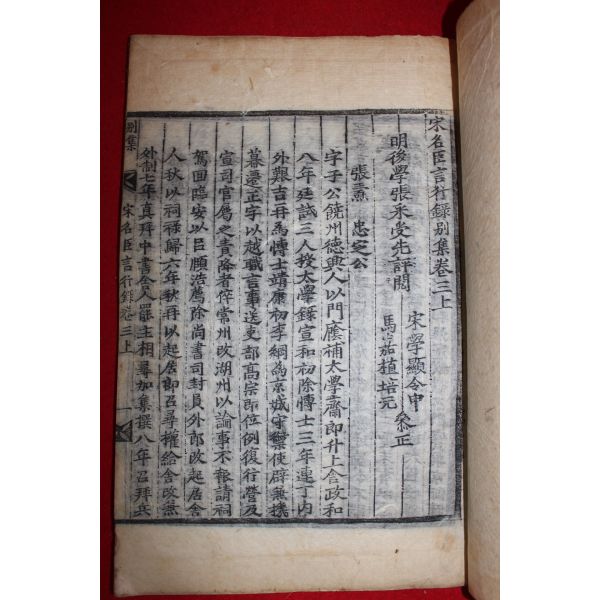 宋名臣言行錄別集卷三上
明後學張采受先評閱
宋學顯令申
馬嘉植培元
叅正
張燾 忠定公
字子公饒州德興人以門廕補太學齋郎升上舍政和
八年廷試三人授太學錄宣和初除博士三年連丁內
外艱吉再爲博士靖康初李綱爲京城守禦使辟兼機
幕遷正字以越職言事送吏部高宗即位例復行營及
宣司官屬之責降者倅常州改湖州以論事不報請祠
駕回臨安以呂頤浩薦除尚書司封員外郎改起居舍
人秋以祠祿歸六年秋再以起居郎召尋權給舍改兼
外制七年真拜中書舍人罷主相尋加集撰八年召拜兵
別集
宋名臣言行錄卷三上
一